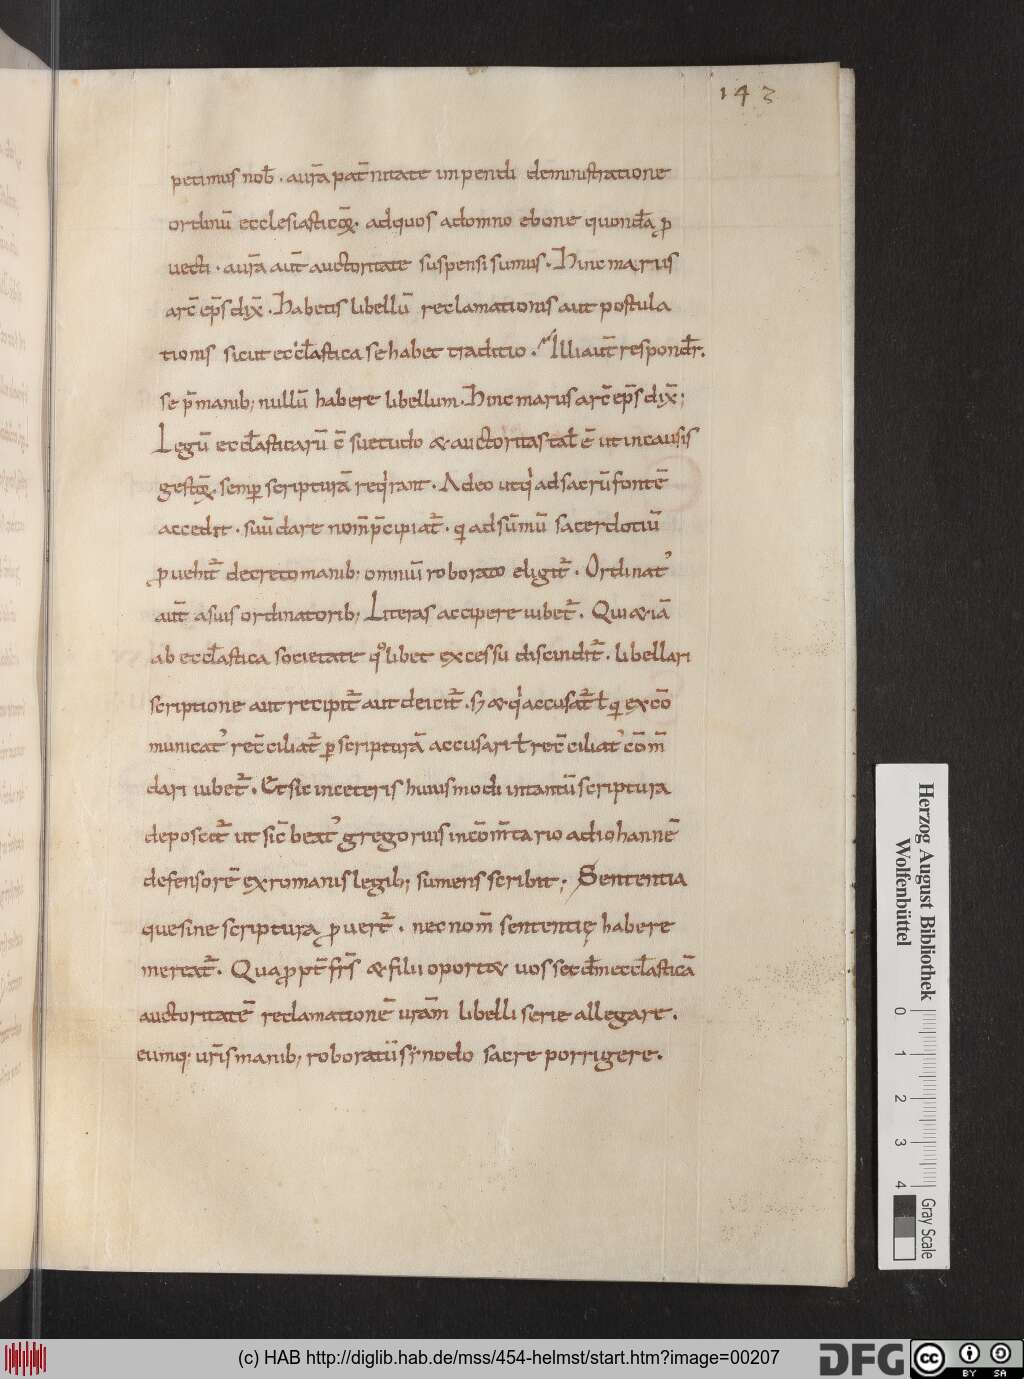 143
petimus nob̄ · aur̄a pat̄nitate impendi deministratione
ordinū ecclesiasticoꝝ · adquos adomno ebone quondā ꝓ
uecti · aur̄a aut̄ auctoritate suspensi sumus · Hincmarus
arc̄ ep̄s dix̄ · Habetis libellū reclamationis aut postula
tionis sicut eccl̄astica se habet traditio · Illi aut̄ respondr̄.
se p̄ manib; nullū habere libellum · Hincmarus arc̄ ep̄s dix̄;
Legū eccl̄asticarū c̄suetudo & auctoritas tal̄ ē ut incausis
gestoꝝ · semꝑ scripturā reqͥrant · Adeo utqͥ adsacrū fontē
accedit · suū dare nom̄ p̄cipiat᷑ · qui adsūmū sacerdotiū
ꝓuehit᷑ decreto manib; omniū roborato eligit᷑ · Ordinat᷒
aut̄ asuis ordinatorib; Literas accipere iubet᷑ · Qui & iā
ab eccl̄astica societate qͦlibet excessu discindit᷑ · libellari
scriptione aut recipit᷑ aut deicit᷑ · s; & qͥ accusat᷑ ł qui excō
municat᷒ rec̄ciliat᷑ ꝑ scripturā accusari ł rec̄ciliat᷒ cōm̄
dari iubet᷑ · Et sic inceteris huiusmodi intantū scriptura
deposcit᷑ ut sic̄ beat᷒ gregorius incōm̄tario adiohannē
defensorē exromanis legib; sumens scribit; Sententia
quesine scriptura ꝓuert᷑ · nec nom̄ sententię habere
mereat᷑ · Quaꝓpt̄ frs̄ & filii oport& uos secd̄m eccl̄asticā
auctoritatē reclamationē uram̄ libelli serie allegare ·
eumq; ur̄is manib; roboratū synodo sacre porrigere ·
Herzog August Bibliothek
Wolfenbüttel
0 1 2 3 4
Gray Scale
(c) HAB http://diglib.hab.de/mss/454-helmst/start.htm?image=00207
DFG
cc BY SA